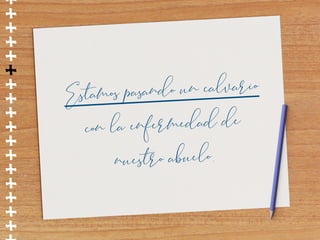 Estamos pasando un calvario
con la enfermedad de
nuestro abuelo.